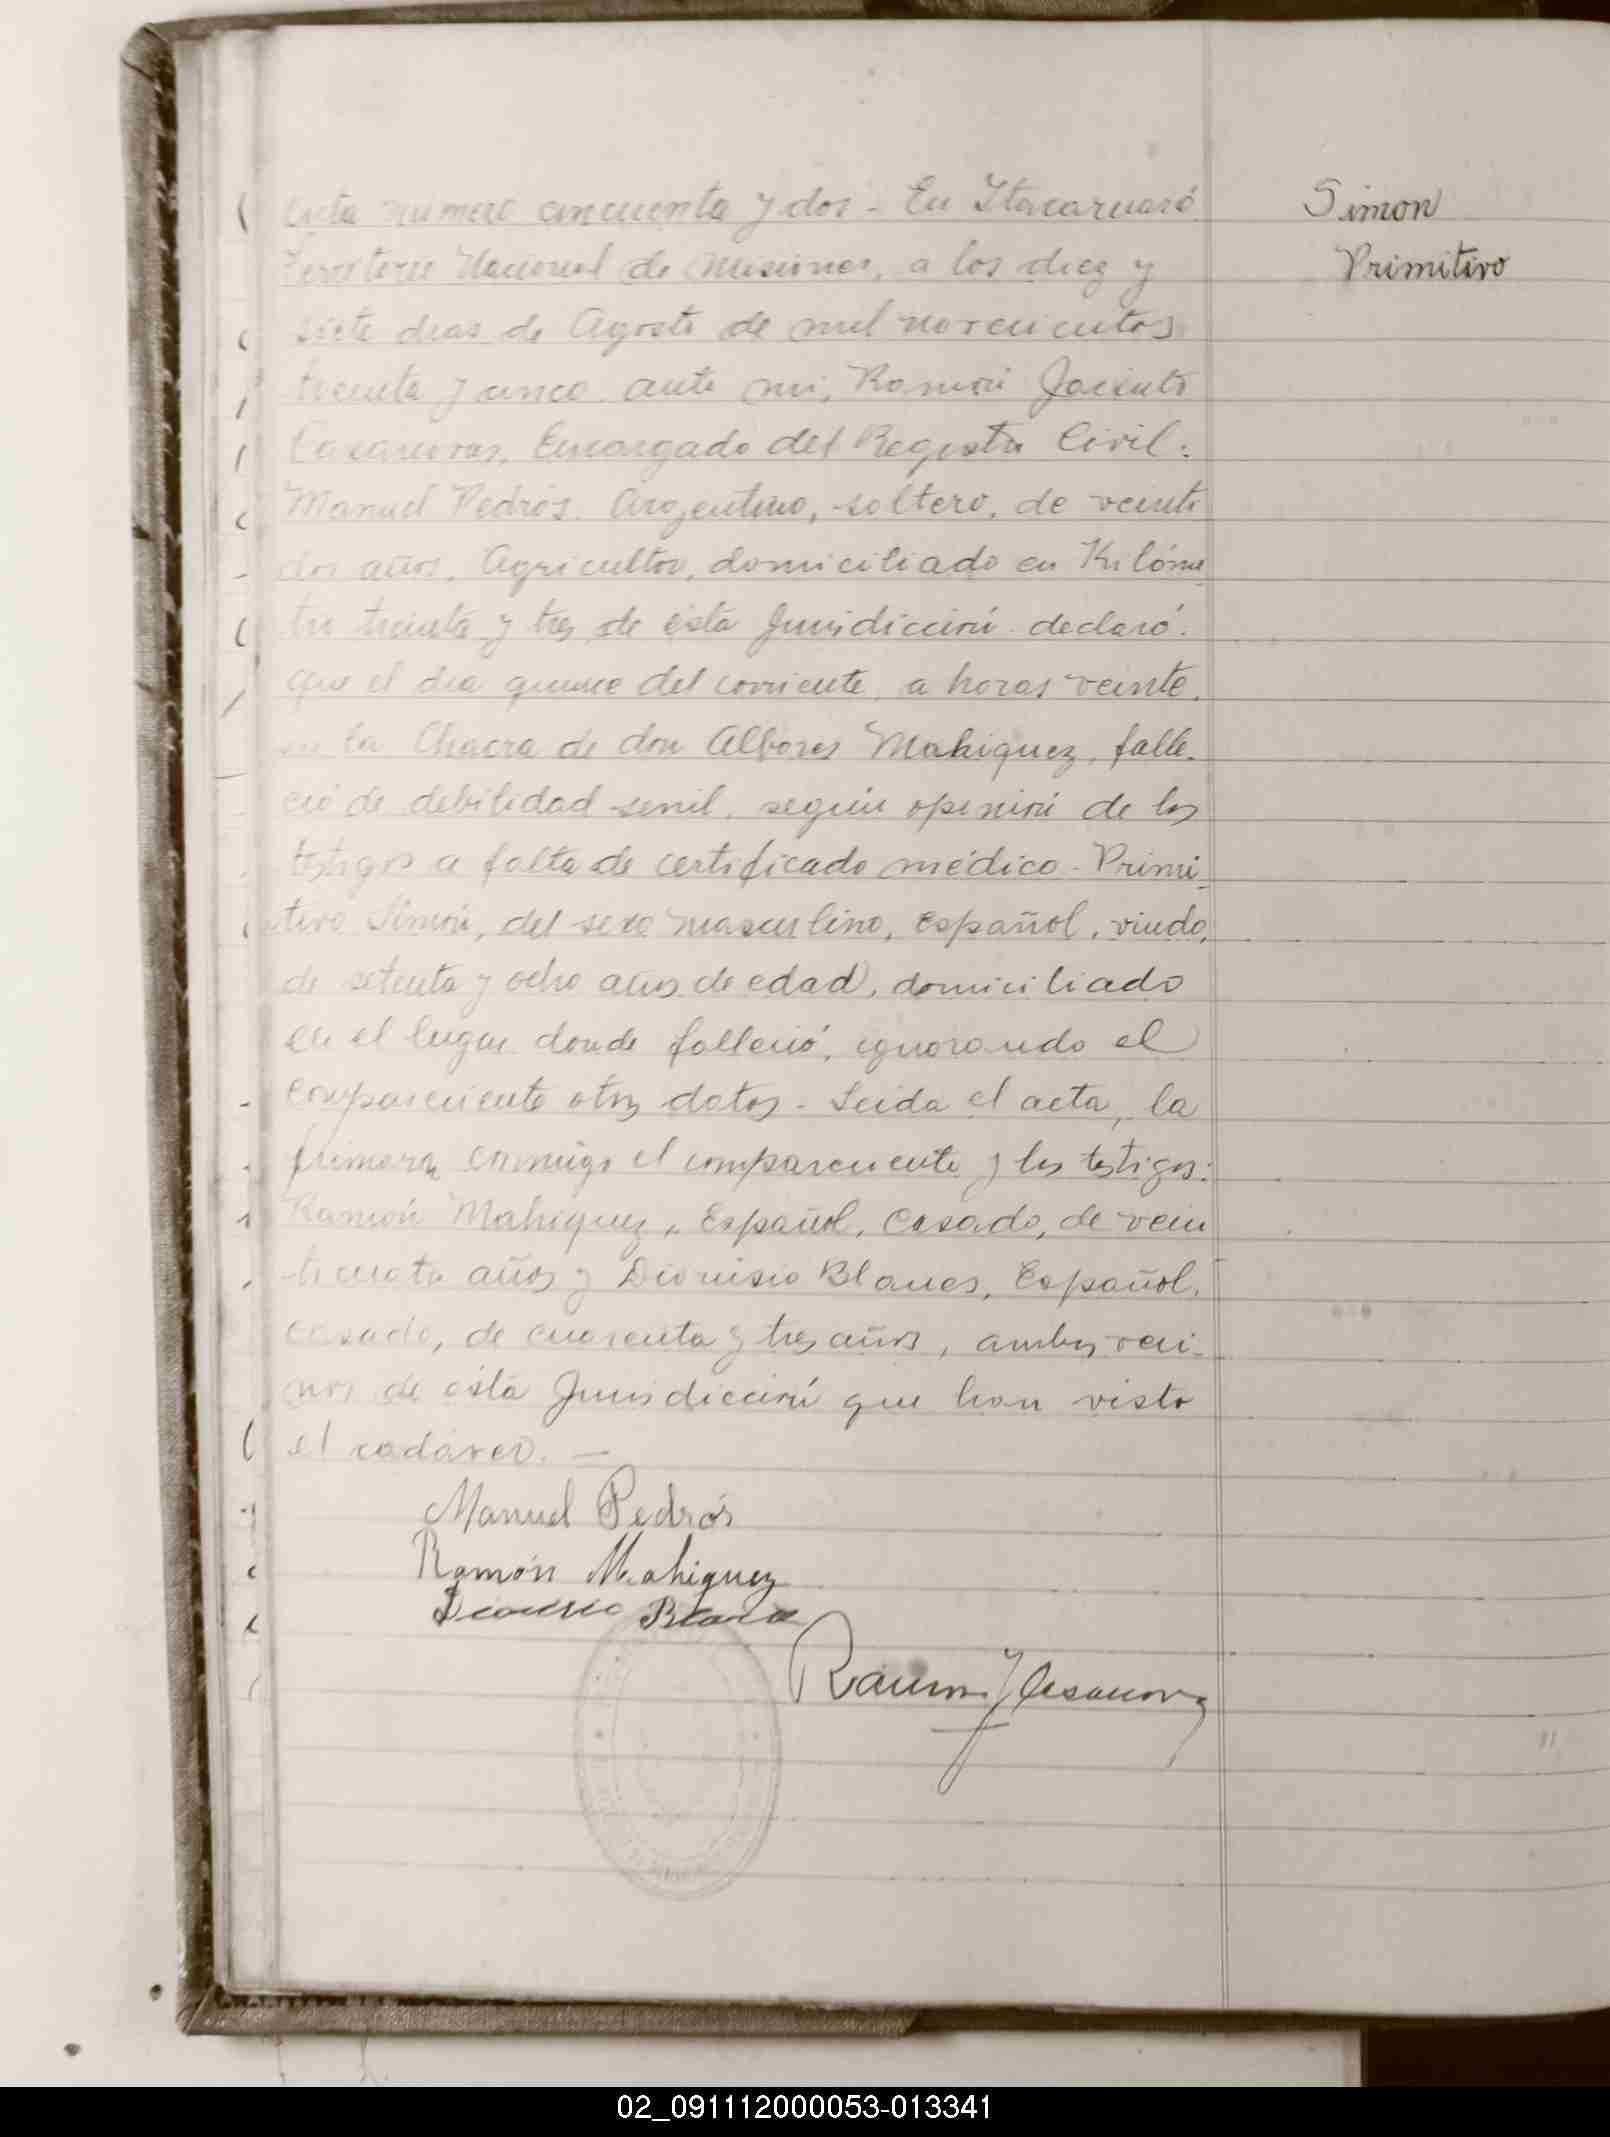 Acta número cincuenta y dos - En Itacaruaré
Territorio Nacional de Misiones, a los diez y
siete dias de Agosto de mil novecientos
treinta y cinco ante mi, Ramón Jacinto
Casanovas, Encargado del Registro Civil:
Manuel Pedrós. Argentino, soltero, de veinti
dos años, Agricultor, domiciliado en Kilóme
tro treinta y tres de ésta Jurisdicción declaró:
que el dia quince del corriente, a horas veinte,
en la Chacra de don Mahiquez, falle-
ció de debilidad senil, según opinión de los
testigos a falta de certificado médico - Primi-
tivo Simón, del sexo masculino, Español, viudo,
de setenta y ocho años de edad, domiciliado
en el lugar donde falleció, ignorando el
compareciente otros datos - Leida el acta, la
firmaron conmigo el compareciente y los testigos:
Ramón Mahiquez, Español, casado, de vein
ticuatro años y Dionisio Blanes, Español,
casado, de cuarenta y tres años, ambos veci-
nos de ésta Jurisdicción que han visto
el cadáver. -
Manuel Pedrós
Ramón Mahiquez
Dionisio
Ramon J Casanovas
Simon
Primitivo
02_091112000053-013341